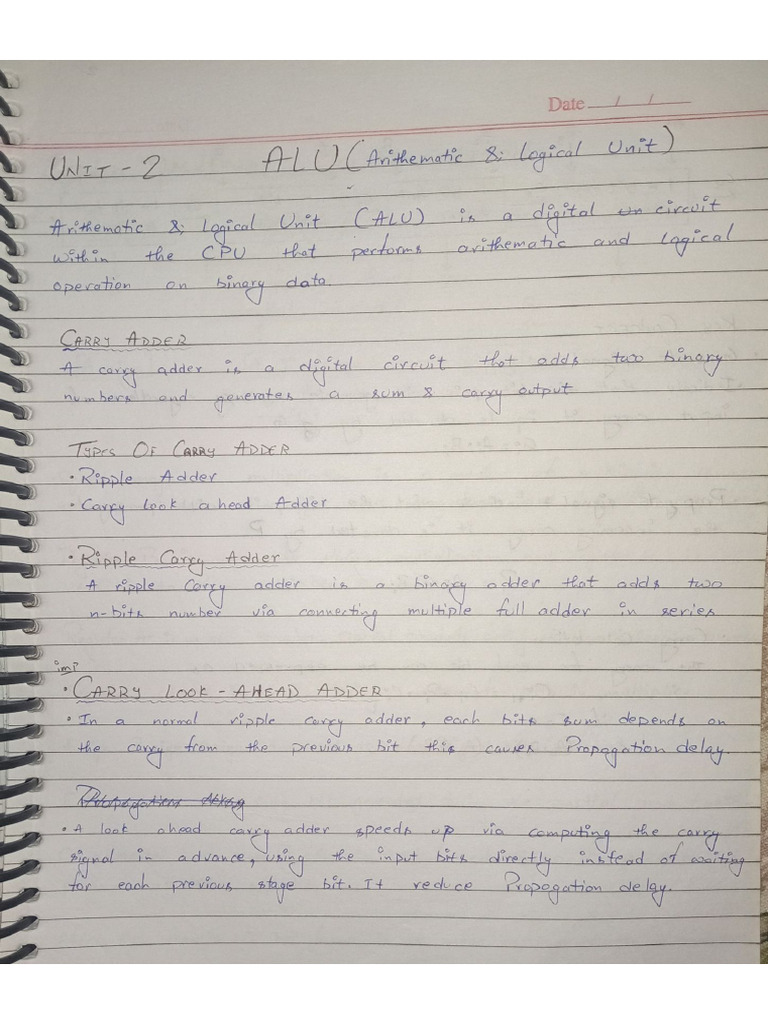 Date / /
UNIT-2 ALU (Arithematic & Logical Unit)
Arithematic & Logical Unit (ALU) is a digital circuit
within the CPU that performs arithematic and logical
operation on binary data.
CARRY ADDER
A carry adder is a digital circuit that adds two binary
numbers and generates a sum & carry output
TYPES OF CARRY ADDER
• Ripple Adder
• Carry look ahead Adder
• Ripple Carry Adder
A ripple Carry adder is a binary adder that adds two
n-bits number via connecting multiple full adder in series
imp
• CARRY LOOK-AHEAD ADDER
• In a normal ripple carry adder, each bits sum depends on
the carry from the previous bit this causes Propogation delay.
• A look ahead carry adder speeds up via computing the carry
signal in advance, using the input bits directly instead of waiting
for each previous stage bit. It reduce Propogation delay.